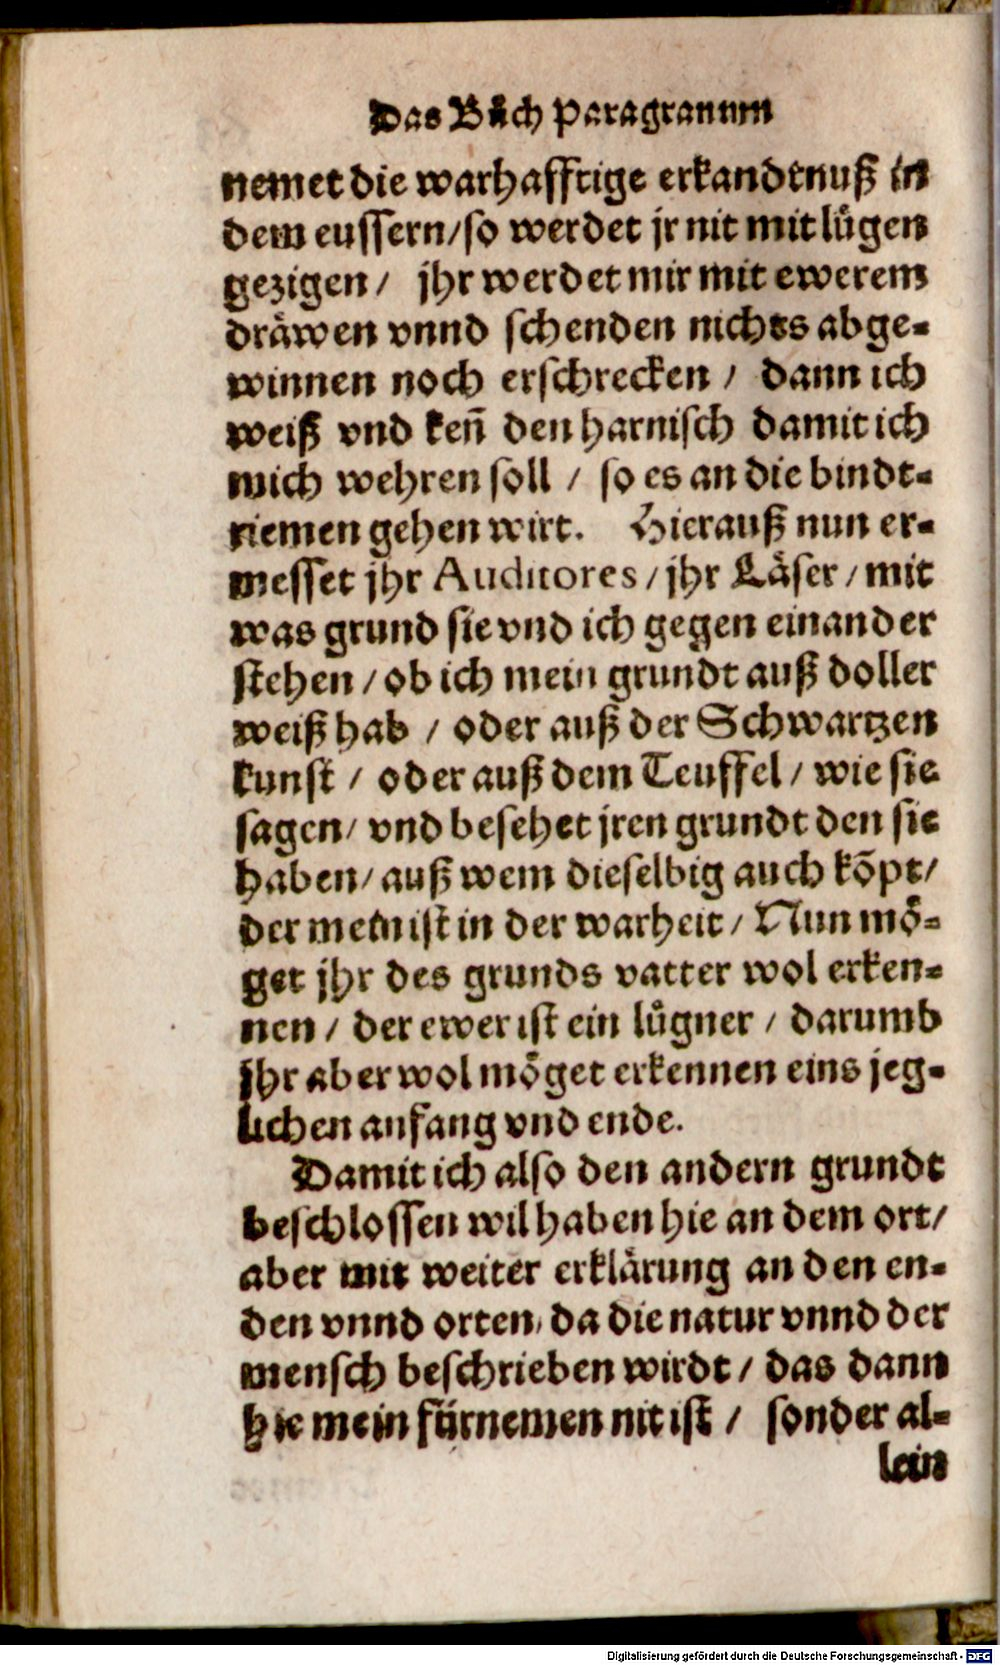 Das Bůch Paragranum
nemet die warhafftige erkandtnuß in
dem eussern/so werdet jr nit mit lügen
gezigen/ jhr werdet mir mit ewerem
dräwen vnnd schenden nichts abge-
winnen noch erschrecken / dann ich
weiß vnd keñ den harnisch damit ich
mich wehren soll / so es an die bindt-
riemen gehen wirt. Hierauß nun er-
messet jhr Auditores/jhr Läser/mit
was grund sie vnd ich gegen einander
stehen/ob ich mein grundt auß doller
weiß hab / oder auß der Schwartzen
kunst / oder auß dem Teuffel/ wie sie
sagen/ vnd besehet jren grundt den sie
haben/auß wem dieselbig auch kõpt/
der mein ist in der warheit/ Nun mö-
get jhr des grunds vatter wol erken-
nen/ der ewer ist ein lügner / darumb
jhr aber wol möget erkennen eins jeg-
lichen anfang vnd ende.
Damit ich also den andern grundt
beschlossen wil haben hie an dem ort/
aber mit weiter erklärung an den en-
den vnnd orten, da die natur vnnd der
mensch beschrieben wirdt/ das dann
hie mein fürnemen nit ist / sonder al-
lein
Digitalisierung gefördert durch die Deutsche Forschungsgemeinschaft - DFG